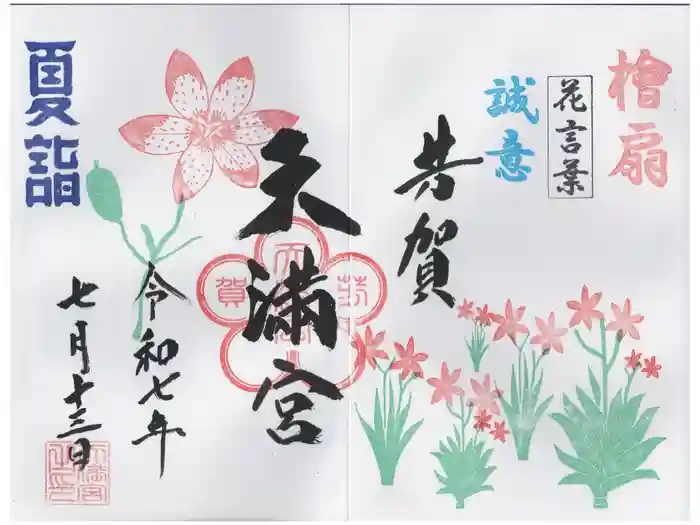 檜扇
花言葉
誠意
芳賀
天満宮
令和七年
七月十三日
夏詣